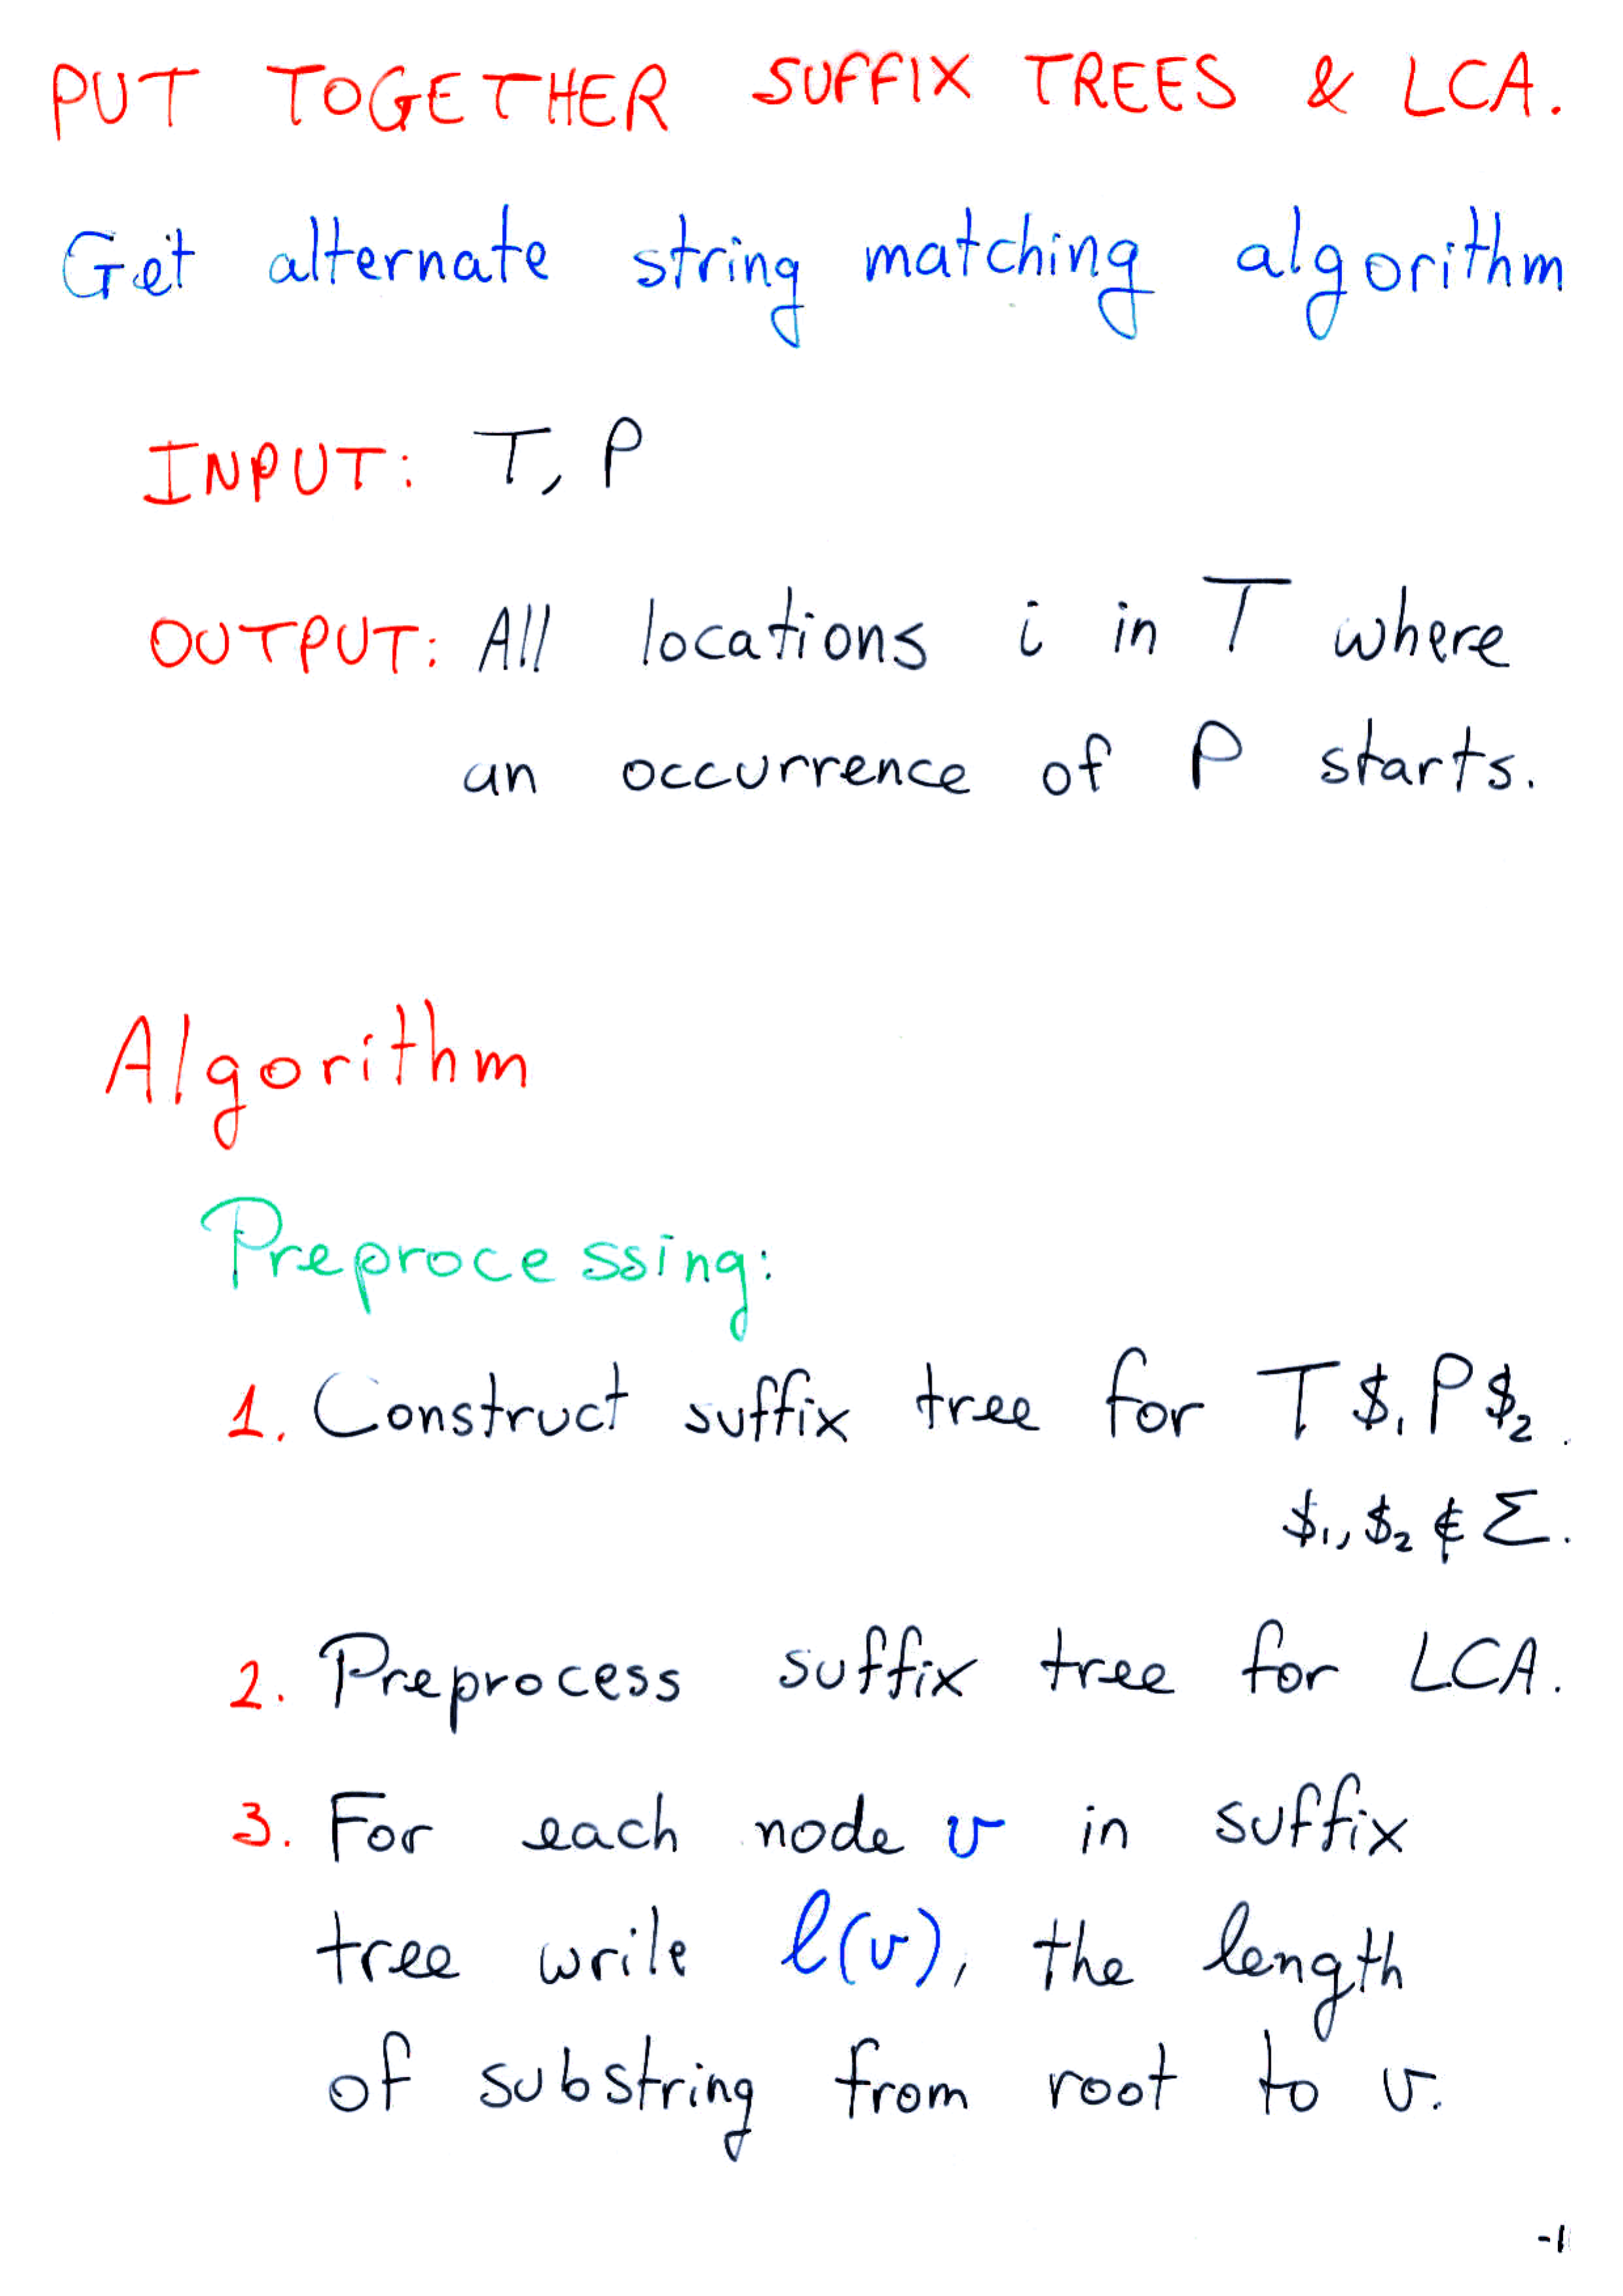 PUT TOGETHER SUFFIX TREES & LCA.
Get alternate string matching algorithm
INPUT: T, P
OUTPUT: All locations i in T where
an occurrence of P starts.
Algorithm
Preprocessing:
1. Construct suffix tree for T$₁P$₂.
$₁, $₂ ∉ Σ.
2. Preprocess suffix tree for LCA.
3. For each node v in suffix
tree write l(v), the length
of substring from root to v.
-1